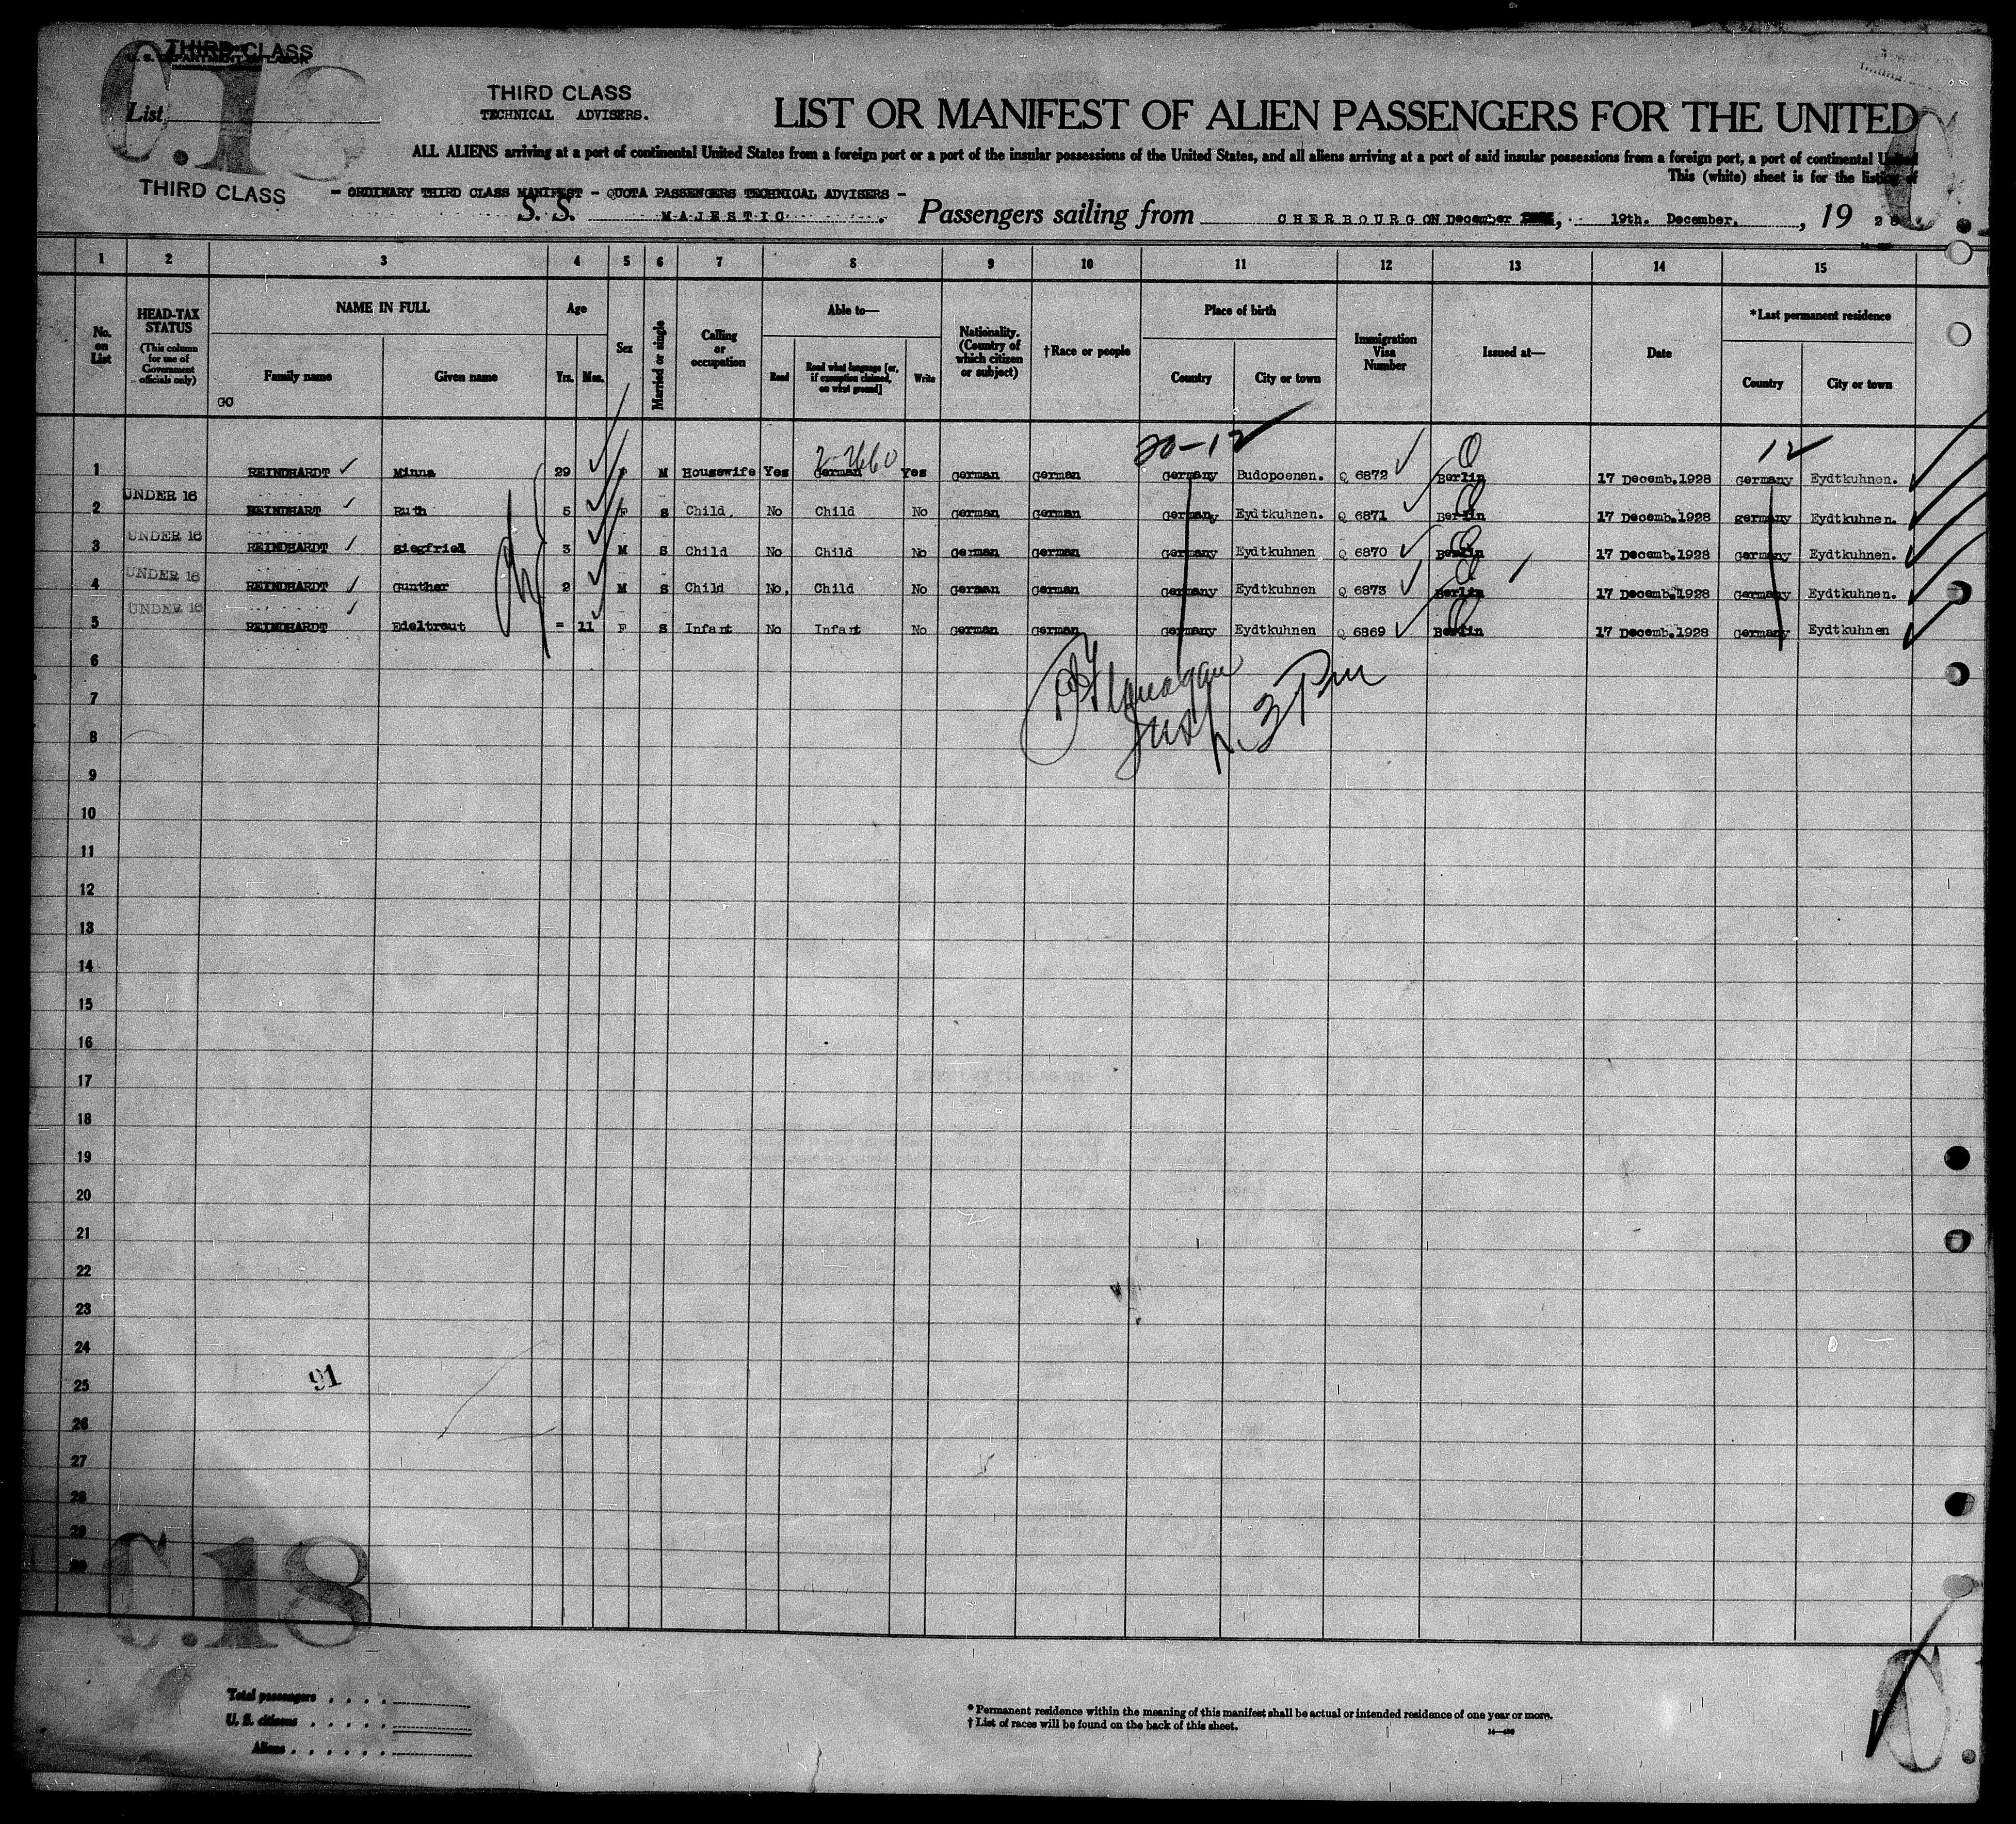 THIRD CLASS
U. S. DEPARTMENT OF LABOR
C.18
List
THIRD CLASS
TECHNICAL ADVISERS.
LIST OR MANIFEST OF ALIEN PASSENGERS FOR THE UNITED
ALL ALIENS arriving at a port of continental United States from a foreign port or a port of the insular possessions of the United States, and all aliens arriving at a port of said insular possessions from a foreign port, a port of continental United
This (white) sheet is for the listing of
THIRD CLASS
- ORDINARY THIRD CLASS MANIFEST - QUOTA PASSENGERS TECHNICAL ADVISERS -
S. S. MAJESTIC. Passengers sailing from CHERBOURG ON December, 19th. December, 19 28
1 2 3 4 5 6 7 8 9 10 11 12 13 14 15
No. on List
HEAD-TAX STATUS (This column for use of Government officials only)
NAME IN FULL Family name Given name
GO
Age Yrs. Mos.
Sex
Married or single
Calling or occupation
Able to— Read Read what language [or, if exemption claimed, on what ground] Write
Nationality. (Country of which citizen or subject)
†Race or people
Place of birth Country City or town
Immigration Visa Number
Issued at—
Date
*Last permanent residence Country City or town
2-2660 20-12 12
1 REINDHARDT Minna 29 F M Housewife Yes German Yes German German Germany Budopoenen. Q 6872 Berlin 17 Decemb.1928 Germany Eydtkuhnen.
UNDER 16
2 REINDHART Ruth 5 F S Child. No Child No German German Germany Eydtkuhnen. Q 6871 Berlin 17 Decemb.1928 germany Eydtkuhnen.
UNDER 16
3 REINDHARDT Siegfried 3 M S Child No Child No German German Germany Eydtkuhnen Q 6870 Berlin 17 Decemb.1928 Germany Eydtkuhnen.
UNDER 16
4 REINDHARDT Gunther 2 M S Child No. Child No German German Germany Eydtkuhnen Q 6873 Berlin 17 Decemb.1928 Germany Eydtkuhnen.
UNDER 16
5 REINDHARDT Edeltraut - 11 F S Infant No Infant No German German Germany Eydtkuhnen Q 6869 Berlin 17 Decemb.1928 Germany Eydtkuhnen
6
Flanagan
7
Insp. 3 Pm
8
9
10
11
12
13
14
15
16
17
18
19
20
21
22
23
24
91
25
26
27
28
29
30
C.18
Total passengers . . . .
U. S. citizens . . . . .
Aliens . . . . . .
* Permanent residence within the meaning of this manifest shall be actual or intended residence of one year or more.
† List of races will be found on the back of this sheet.